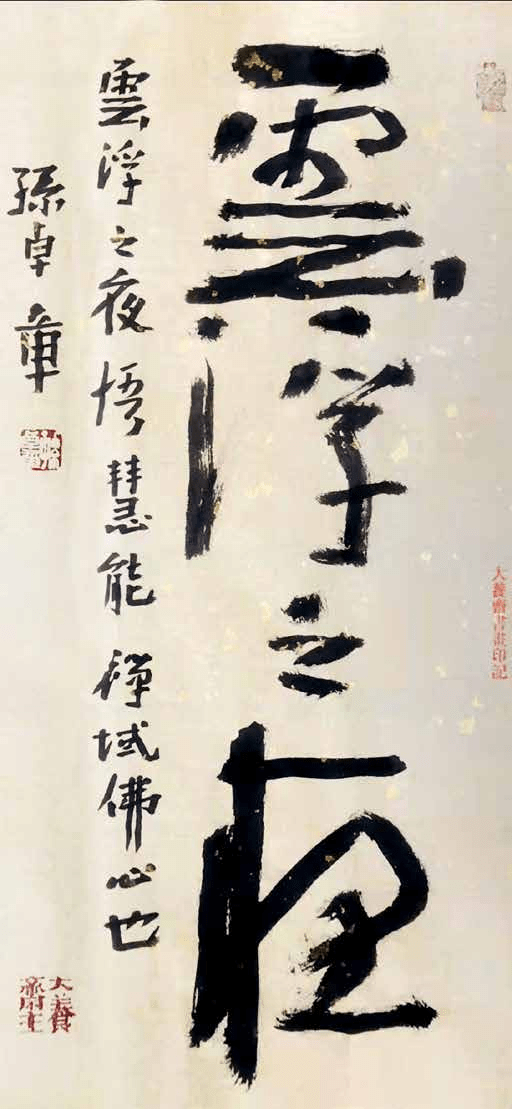 雲浮之夜
雲浮之夜悟慧能禪域佛心也
孫卓章
大義齋書畫印記